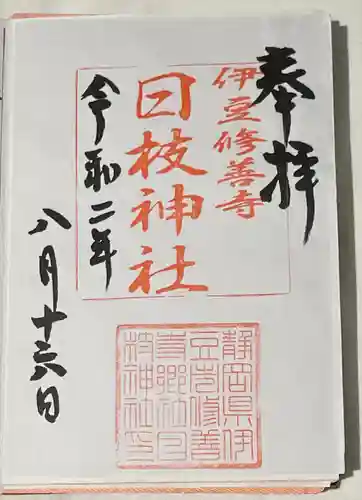 奉拝
伊豆修善寺
日枝神社
令和二年
八月十六日
静岡県伊
豆市修善
寺郷社日
枝神社印